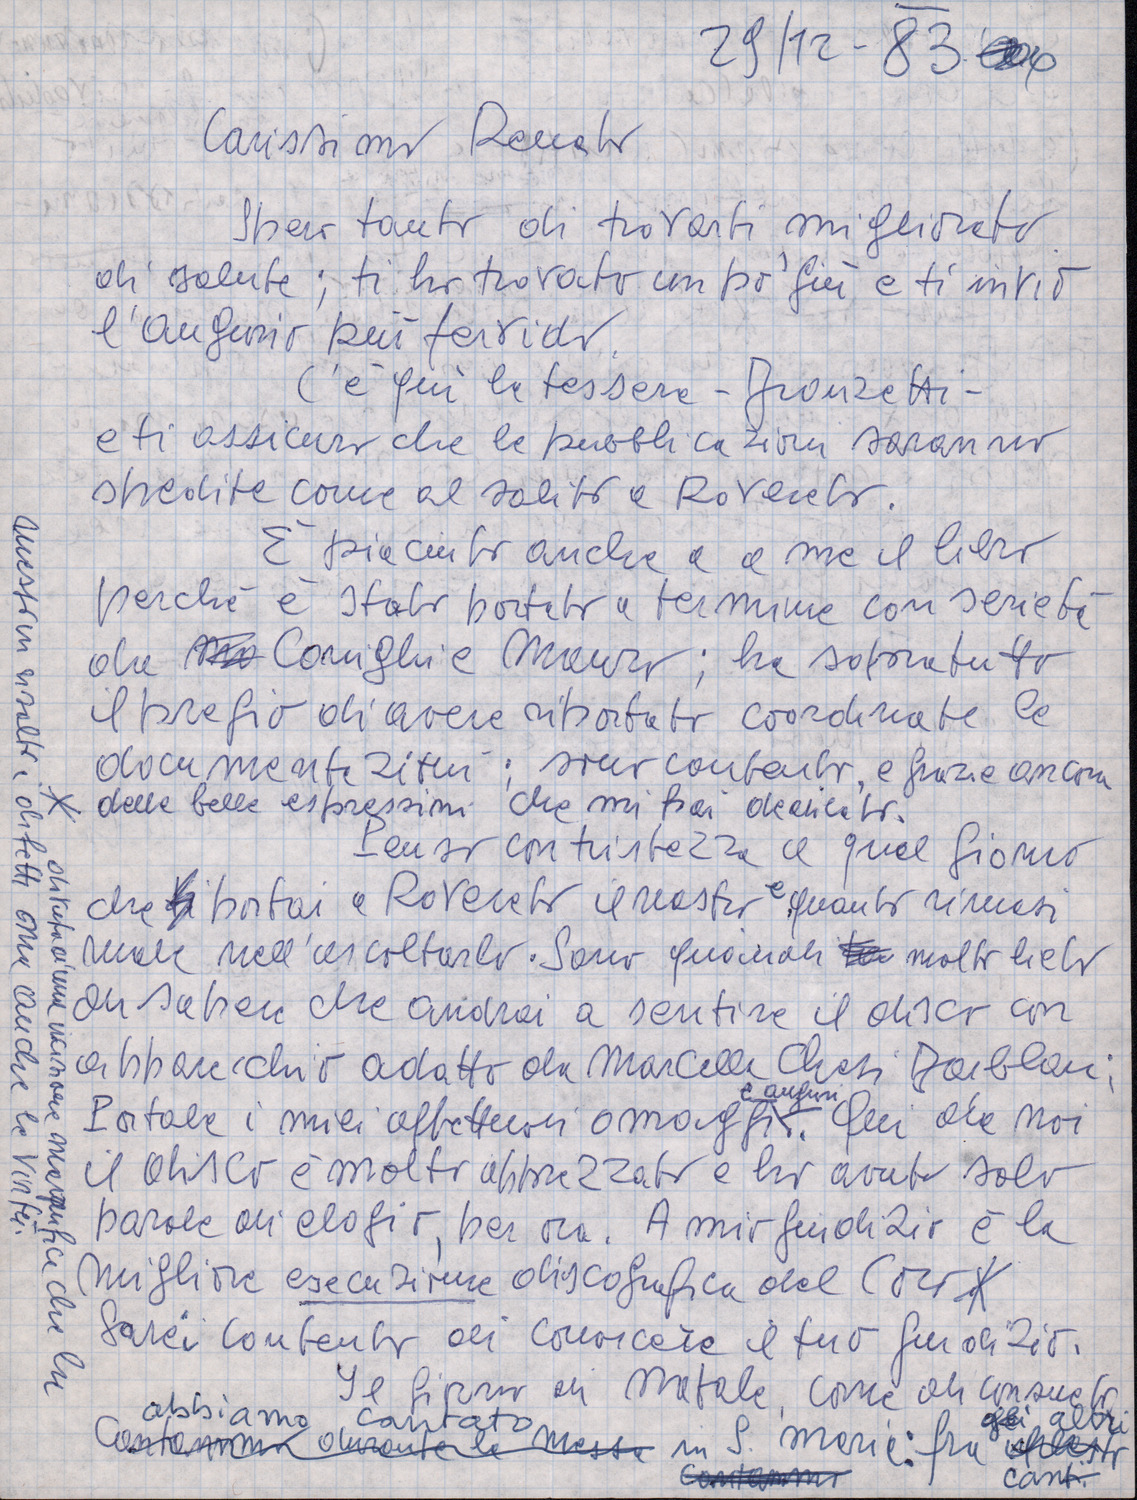 29/12-83
Carissimo Renato
Spero tanto di trovarti migliorato
di salute; ti ho trovato un po' giù e ti invio
l'augurio più fervido.
C'è qui la tessera - Bronzetti -
e ti assicuro che le pubblicazioni saranno
spedite come al solito a Rovereto.
È piaciuto anche a a me il libro
perché è stato portato a termine con serietà
da Conighi e Mauro; ha sopratutto
il pregio di avere riportato coordinate le
documentazioni; sono contento, e grazie ancora
delle belle espressioni che mi hai dedicato.
Penso con tristezza a quel giorno
che ti portai a Rovereto il nastro e quanto rimasi
male nell'ascoltarlo. Sono quindi molto lieto
di sapere che andrai a sentire il disco con
apparecchio adatto da Marcella Chesi
Portale i miei affettuosi omaggi e auguri. Qui da noi
il disco è molto apprezzato e ho avuto solo
parole di elogio, per ora. A mio giudizio è la
migliore esecuzione discografica del Coro *
Sarei contento di conoscere il tuo giudizio.
Il giorno di Natale, come di consueto
abbiamo cantato
Cantammo durante la messa in S. Maria: fra gli altri
Cantammo canti
* dotato di una incisione magnifica che lu
mette in risalto i difetti ma anche le virtù.